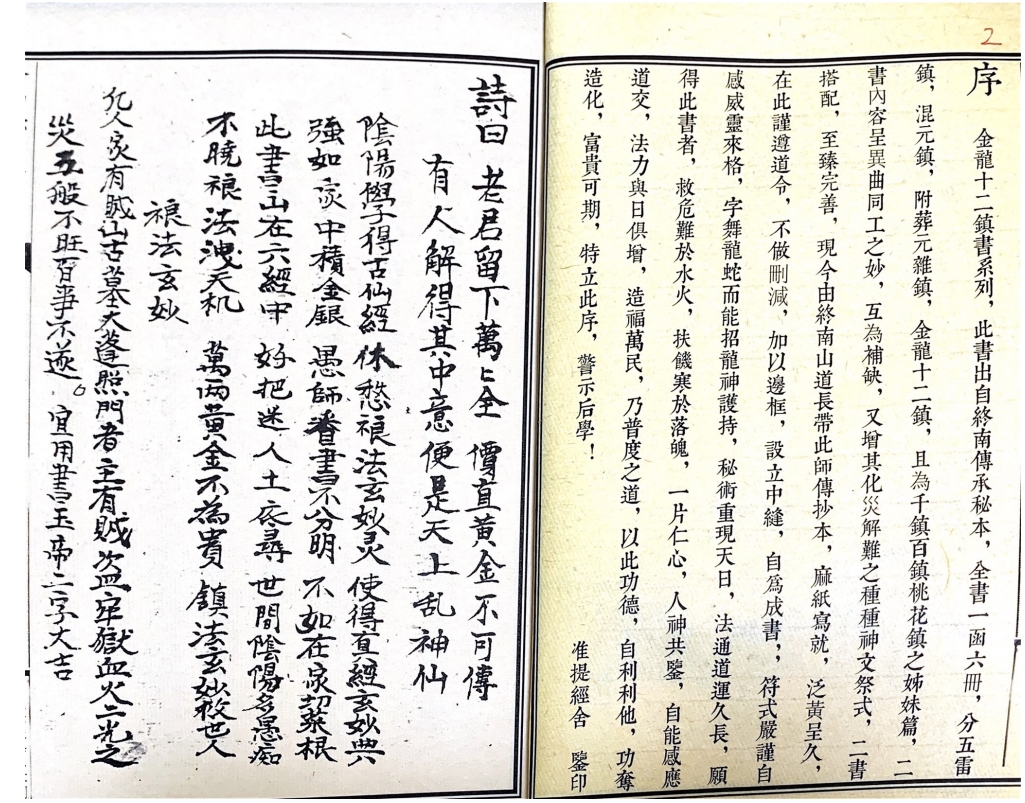 2
序
金龍十二鎮書系列，此書出自終南傳承秘本，全書一函六冊，分五雷
鎮，混元鎮，附葬元雜鎮，金龍十二鎮，且為千鎮百鎮桃花鎮之姊妹篇，二
書內容呈異曲同工之妙，互為補缺，又增其化災解難之種種神文祭式，二書
搭配，至臻完善，現今由終南山道長帶此師傳抄本，麻紙寫就，泛黃呈久，
在此謹遵道令，不做刪減，加以邊框，設立中縫，自爲成書，，符式嚴謹自
感威靈來格，字舞龍蛇而能招龍神護持，秘術重現天日，法通道運久長，願
得此書者，救危難於水火，扶饑寒於落魄，一片仁心，人神共鑒，自能感應
道交，法力與日俱增，造福萬民，乃普度之道，以此功德，自利利他，功奪
造化，富貴可期，特立此序，警示后學！
准提經舍 鑒印
詩曰 老君留下萬上全 價直黃金不可傳
有人解得其中意便是天上乱神仙
陰陽學子得古仙經 休愁禳法玄妙灵 使得直經玄妙典
强如家中積金銀 愚師看書不分明 不如在家契菜根
此書出在六經中 好把迷人土底尋 世間陰陽多愚痴
不曉禳法洩天机 萬两黃金不為貴 鎮法玄妙救世人
禳法玄妙
凢人家有賊山古墓大逢照門者主有賊盜牢獄血火之光之
災五般不旺百事不遂。宜用書玉帝二字大吉